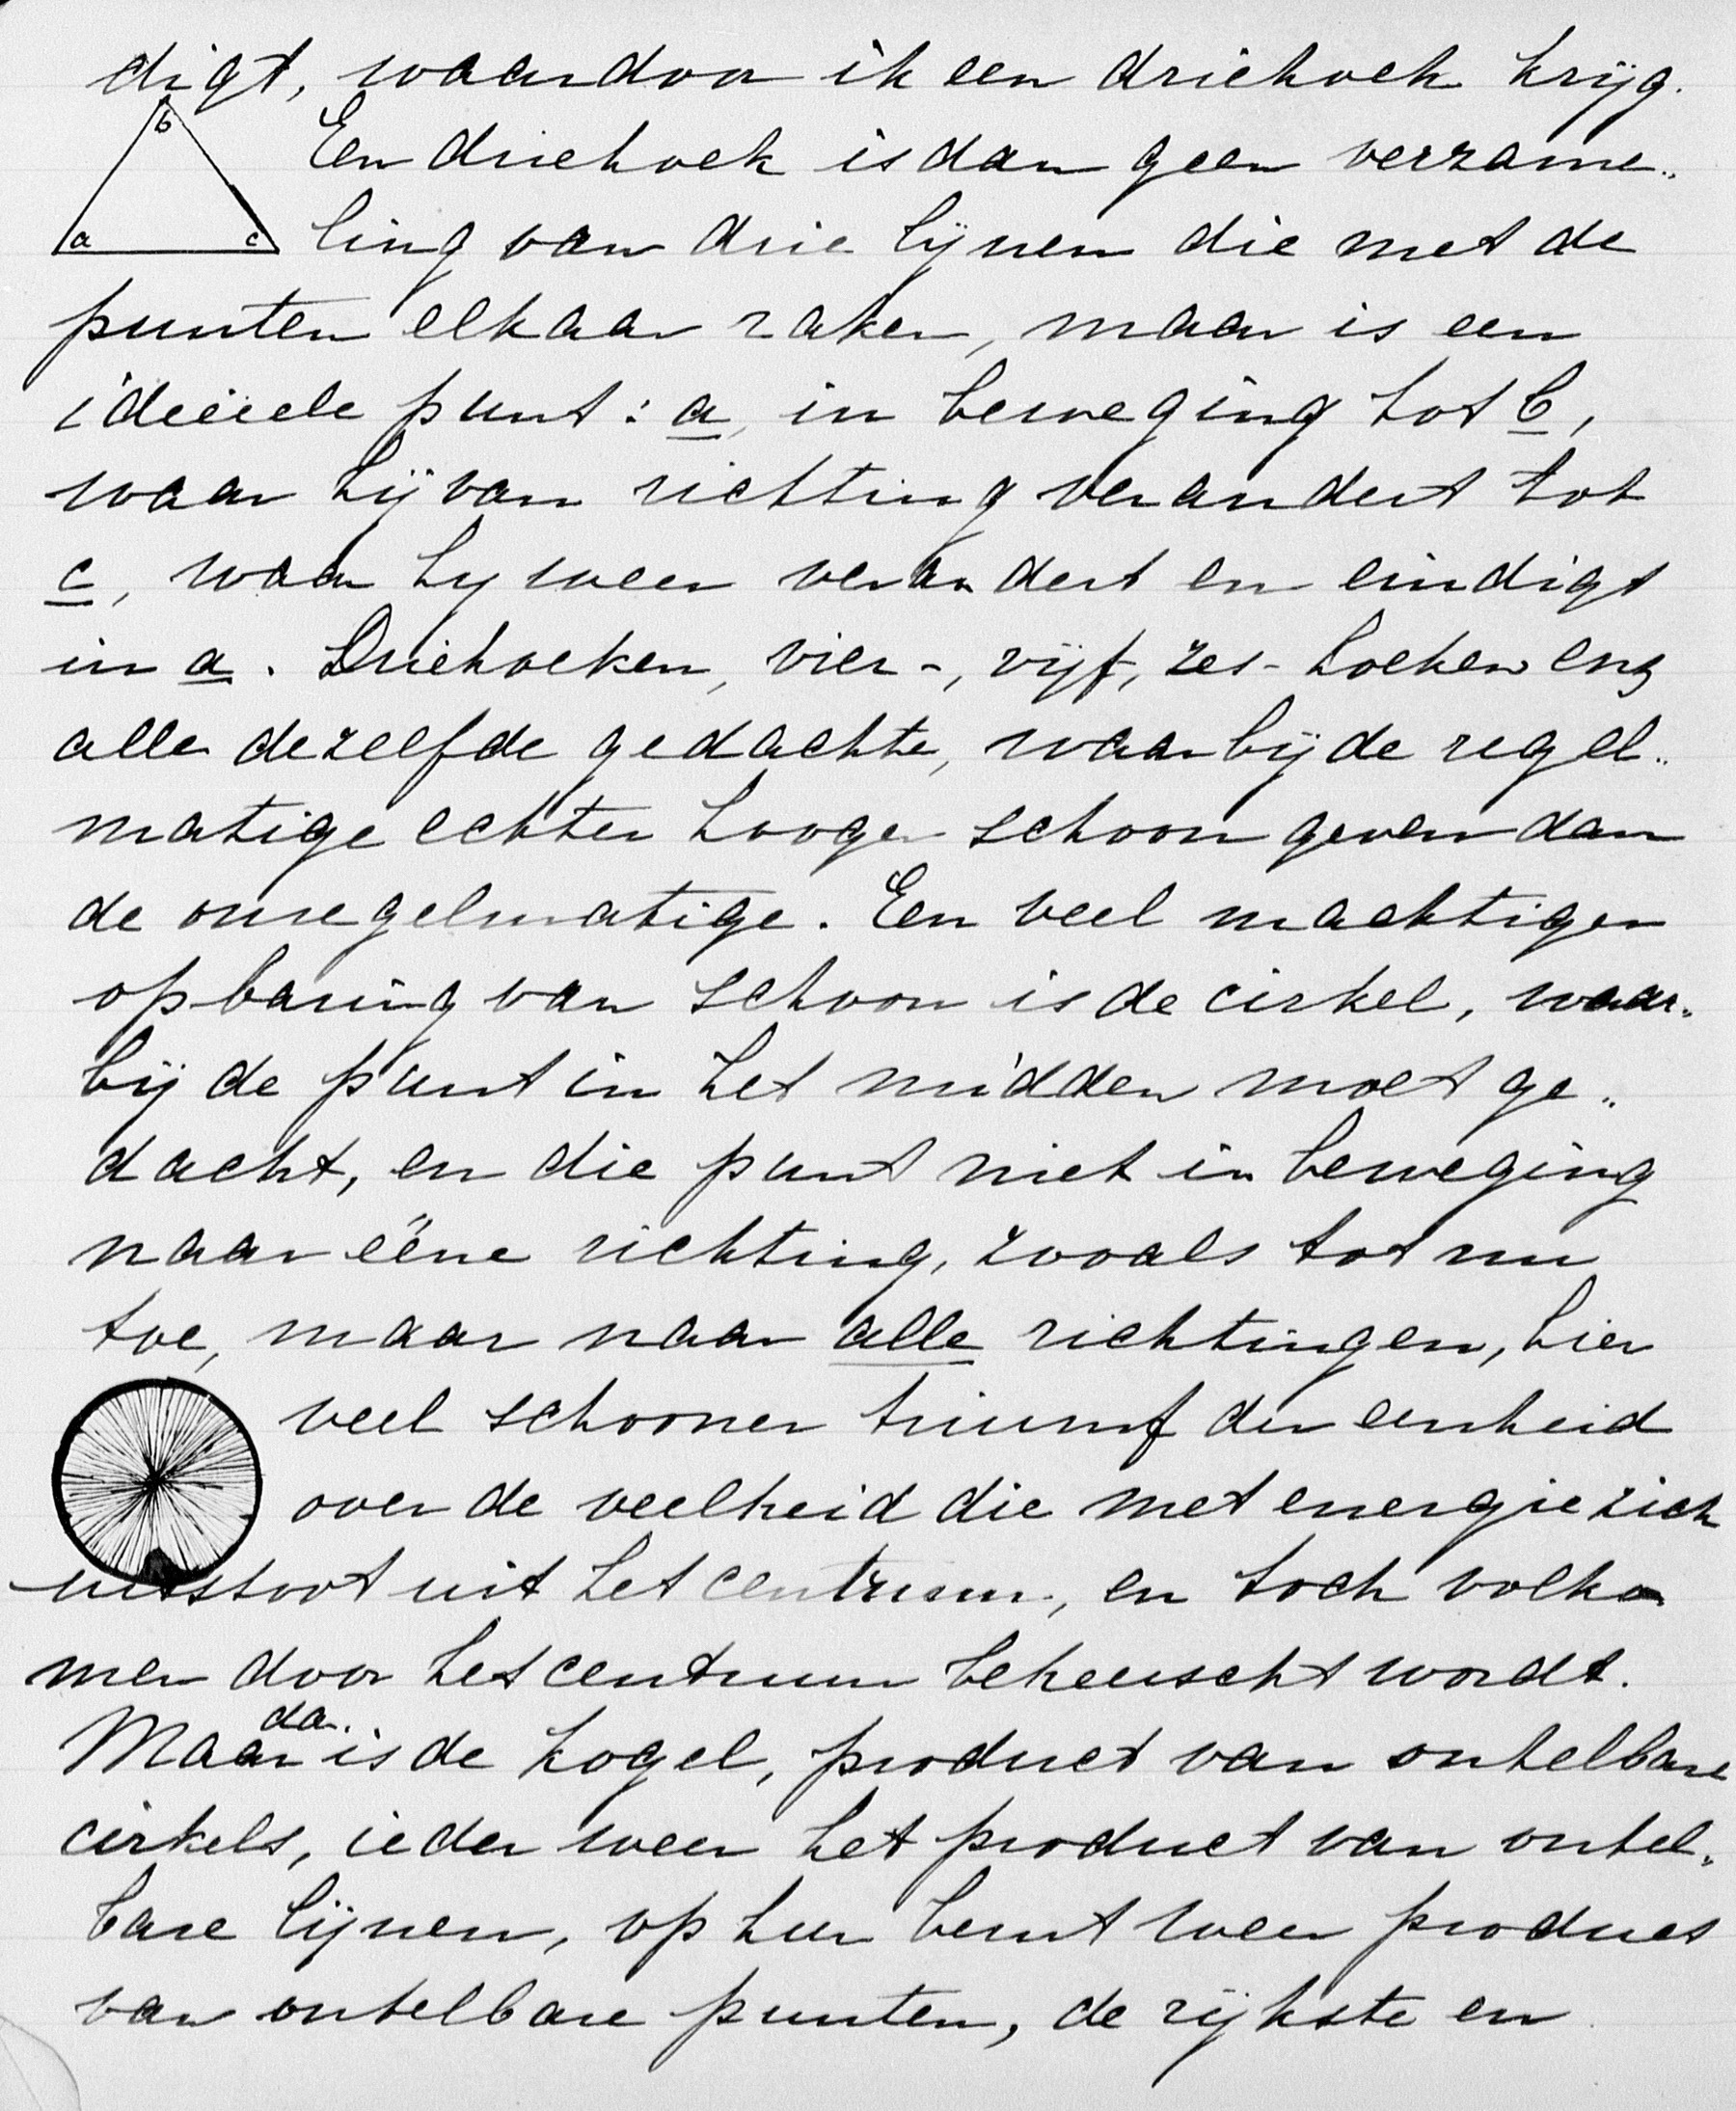 digt, waardoor ik een driehoek krijg.
b
Een driehoek is dan geen verzame„
a c
ling van drie lijnen die met de
punten elkaar raken, maar is een
ideëele punt: a, in beweging tot b,
waar hij van richting verandert tot
c, waar hij weer verandert en eindigt
in a. Driehoeken, vier-, vijf, zes-hoeken enz
alle dezelfde gedachte, waarbij de regel„
matige echter hooger schoon geven dan
de onregelmatige. Een veel machtiger
opbaring van schoon is de cirkel, waar„
bij de punt in het midden moet ge„
dacht, en die punt niet in beweging
naar ééne richting, zooals tot nu
toe, maar naar alle richtingen, hier
veel schooner triumf der eenheid
over de veelheid die met energie zich
uitstoot uit het centrum, en toch volko
men door het centrum beheerscht wordt.
da.
Maar is de kogel, product van ontelbare
cirkels, ieder weer het product van ontel„
bare lijnen, op hun beurt weer product
van ontelbare punten, de rijkste en